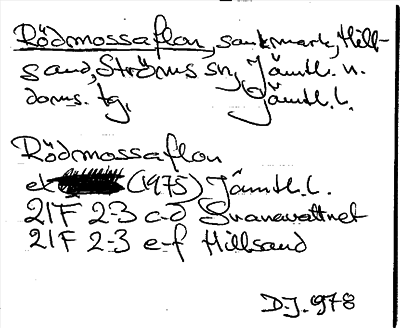 Rödmossaflon, sankmark, Hill-
sand, Ströms sn, Jämtl. n.
doms. tg. Jämtl. l.
Rödmossaflon
ek (1975) Jämtl. l.
21F 2-3 c-d Svanavattnet
21F 2-3 e-f Hillsand
D.J. 978